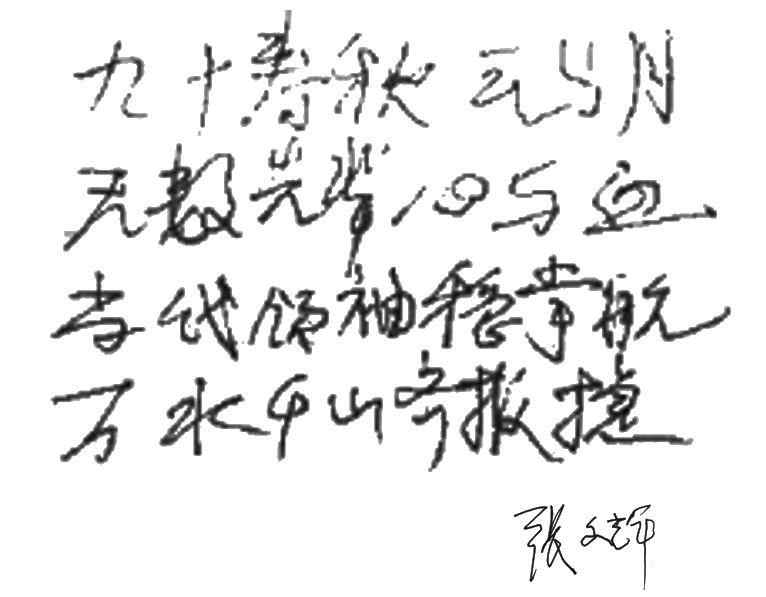 九十春秋云与月
无数先辈心与血
当代领袖稳掌航
万水千山齐报捷
张文辉